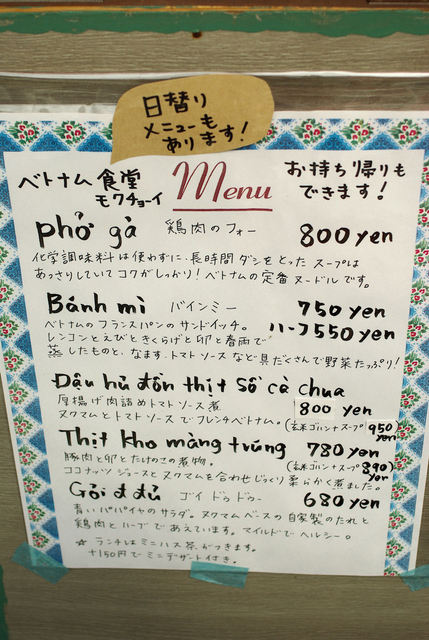 日替り
メニューも
あります!
ベトナム食堂
モクチョーイ
Menu
お持ち帰りも
できます!
phở gà 鶏肉のフォー 800yen
化学調味料は使わずに、長時間ダシをとったスープは
あっさりしていてコクがしっかり!ベトナムの定番ヌードルです。
Bánh mì バインミー 750yen
ベトナムのフランスパンのサンドイッチ。 ハーフ550yen
レンコンとえびときくらげと卵と春雨で
蒸したものと、なます、トマトソースなど具だくさんで野菜たっぷり!
Đậu hủ dồn thịt sốt cà chua
厚揚げ肉詰めトマトソース煮 800 yen
ヌクマムとトマトソースでフレンチベトナム。 950yen
Thịt kho măng trứng 780yen
豚肉と卵とたけのこの煮物。 890yen
ココナッツジュースとヌクマムを合わせじっくり柔らかく煮ました。
Gỏi đu đủ ゴイ ドゥ ドゥー 680yen
青いパパイヤのサラダ。ヌクマムベースの自家製のたれと
鶏肉とハーブであえています。マイルドでヘルシー。
☆ ランチはミニハス茶がつきます。
+150円でミニデザート付き。